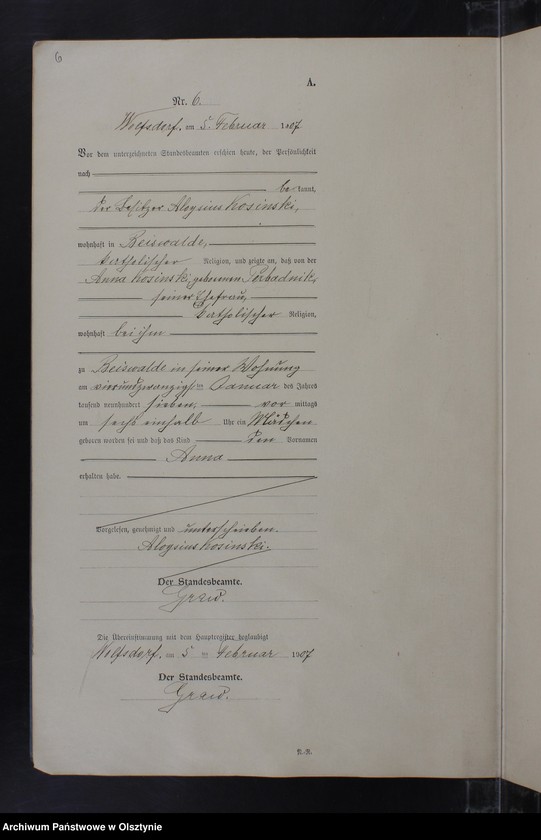 6
A.
Nr. 6.
Wolfsdorf, am 5. Februar 1907
Vor dem unterzeichneten Standesbeamten erschien heute, der Persönlichkeit
nach
be kannt,
der Besitzer Aloysius Kosinski,
wohnhaft in Beiswalde,
katholischer Religion, und zeigte an, daß von der
Anna Kosinski, geborenen
seiner Ehefrau,
katholischer Religion,
wohnhaft bei ihm
zu Beiswalde in seiner Wohnung
am vierundzwanzigsten Januar des Jahres
tausend neunhundert sieben, vor mittags
um sechs einhalb Uhr ein Mädchen
geboren worden sei und daß das Kind den Vornamen
Anna
erhalten habe.
Vorgelesen, genehmigt und unterschrieben.
Aloysius Kosinski.
Der Standesbeamte.
Graw.
Die Übereinstimmung mit dem Hauptregister beglaubigt
Wolfsdorf, am 5 ten Februar 1907
Der Standesbeamte.
Graw.
Archiwum Państwowe w Olsztynie